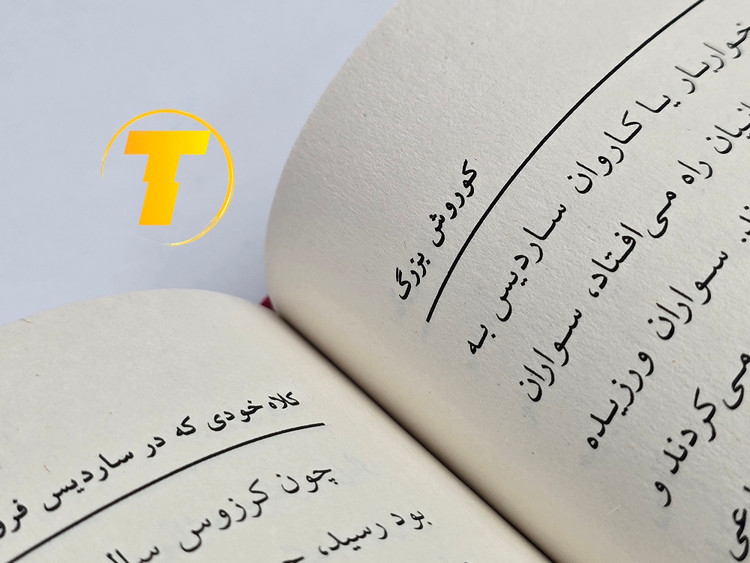 کوروش بزرگ
خواربار یا کاروان ساردیس به
راه می‌افتاد، سواران
سواران ورزیده
می‌کردند و
کلاه خودی که در ساردیس
چون کرزوس
بود رسید،
T